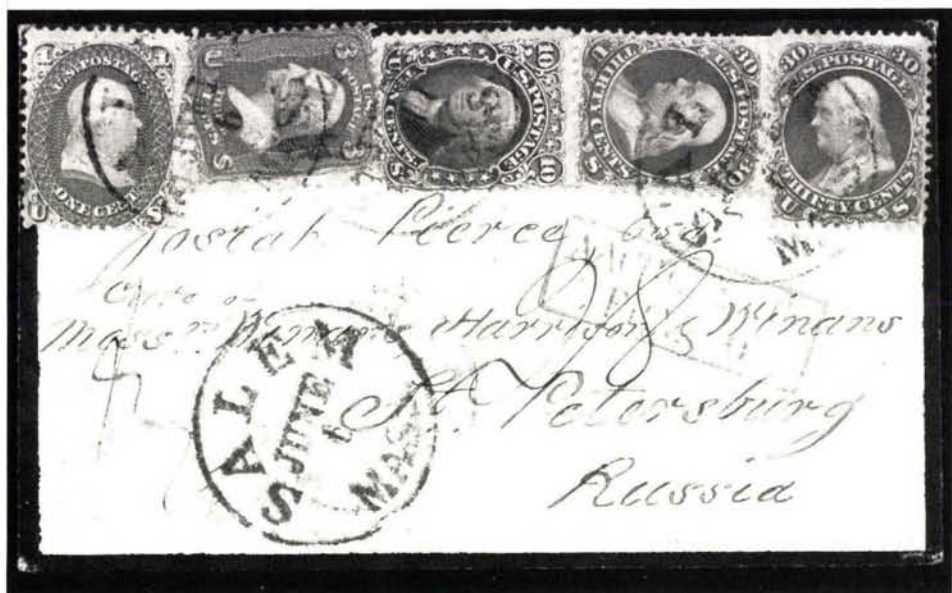 1 U.S. POSTAGE 1
ONE CENT
U S
3 U.S. POSTAGE 3
U S
10 U.S. POSTAGE 10
TEN CENTS
U S
30 U.S. POSTAGE 30
THIRTY CENTS
U S
30 U.S. POSTAGE 30
THIRTY CENTS
U S
Josiah Pierce Esqr.
Care of
Messrs Winans, Harrison & Winans
St. Petersburg
Russia
SALEM
JUNE
6
MASS